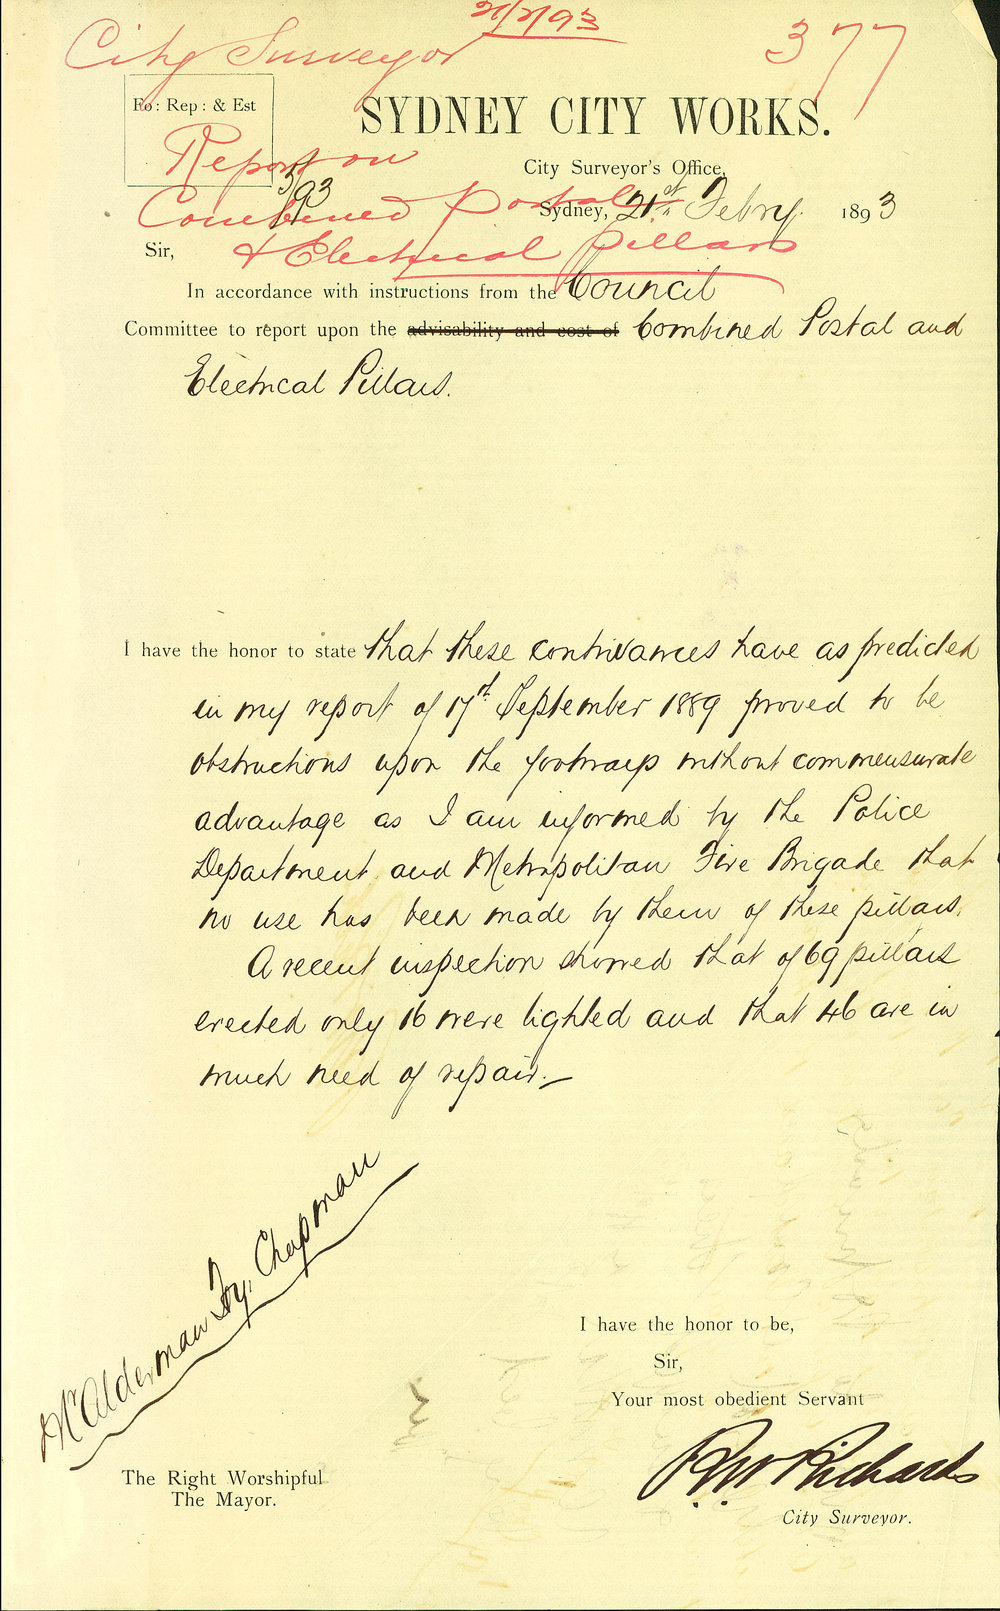 21/2/93
City Surveyor
377
Fo: Rep: & Est
SYDNEY CITY WORKS.
Report on
City Surveyor's Office,
3/93
Combined Postal
Sydney, 21st Febry. 1893
& Electrical pillars
Sir,
In accordance with instructions from the Council
Committee to report upon the advisability and cost of Combined Postal and
Electrical Pillars.
I have the honor to state that these contrivances have as predicted
in my report of 17th September 1889 proved to be
obstructions upon the footways without commensurate
advantage as I am informed by the Police
Department and Metropolitan Fire Brigade that
no use has been made by them of these pillars.
A recent inspection showed that of 69 pillars
erected only 16 were lighted and that 46 are in
much need of repair.—
Mr Alderman Foy, Chapman
I have the honor to be,
Sir,
Your most obedient Servant
The Right Worshipful
The Mayor.
R.W. Richards
City Surveyor.